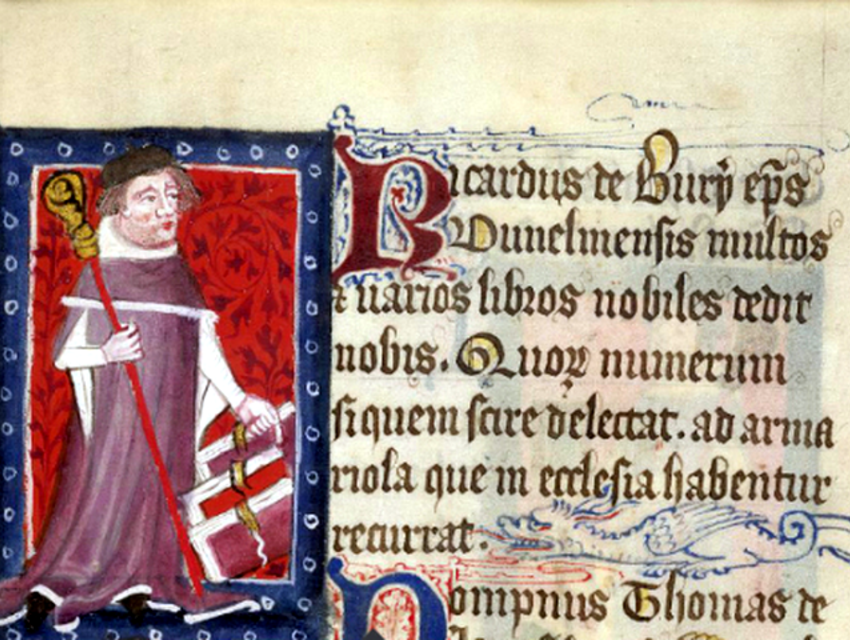 Ricardus de Bury ep̄s
Dunelmensis multos
⁊ uarios libros nobiles dedit
nobis. Quoꝝ numerum
siquem scire delectat. ad arma
riola que in ecclesia habentur
recurrat.
Dompnus Thomas de